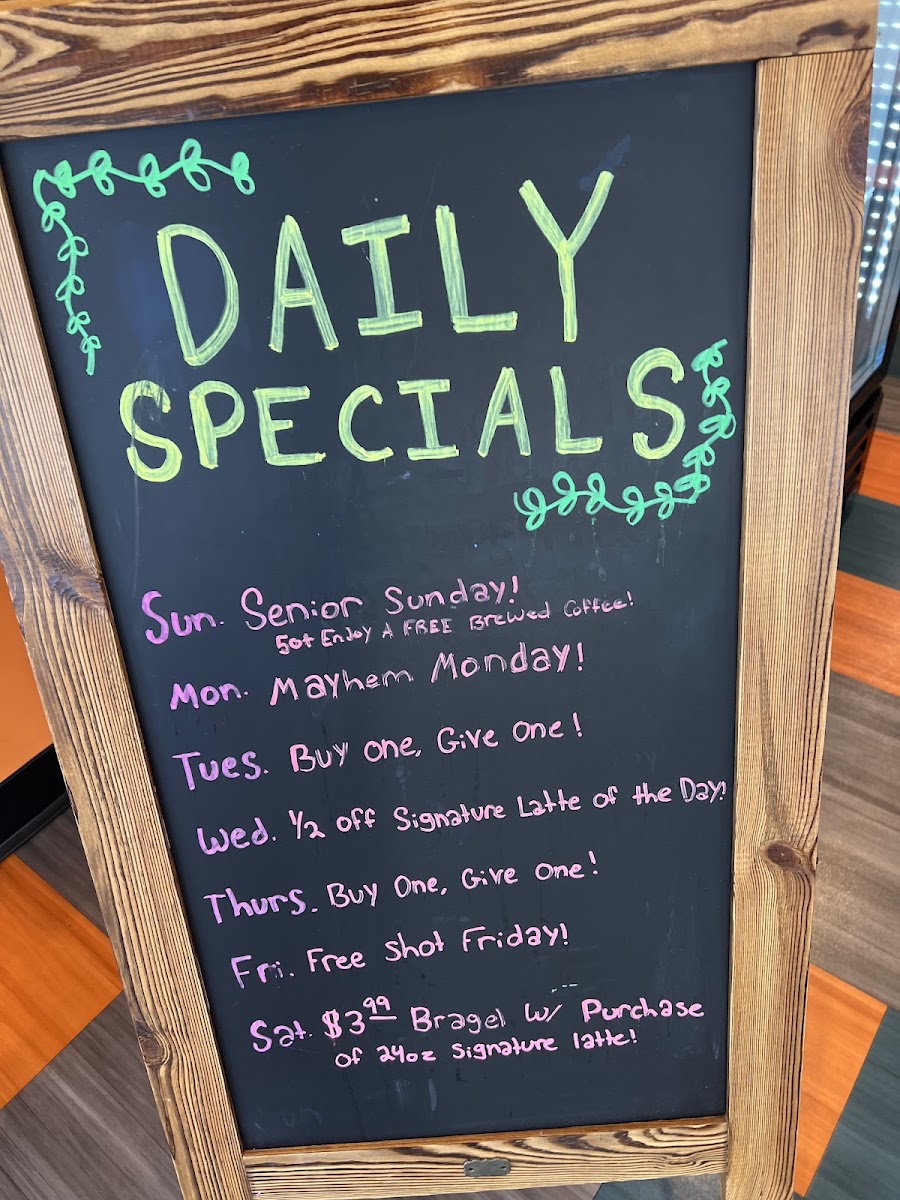 DAILY
SPECIALS
Sun. Senior Sunday!
50+ Enjoy A FREE Brewed Coffee!
Mon. Mayhem Monday!
Tues. Buy one, Give One!
Wed. 1/2 off Signature Latte of the Day!
Thurs. Buy One, Give One!
Fri. Free Shot Friday!
Sat. $3.99 Bragel w/ Purchase
of 24oz Signature latte!